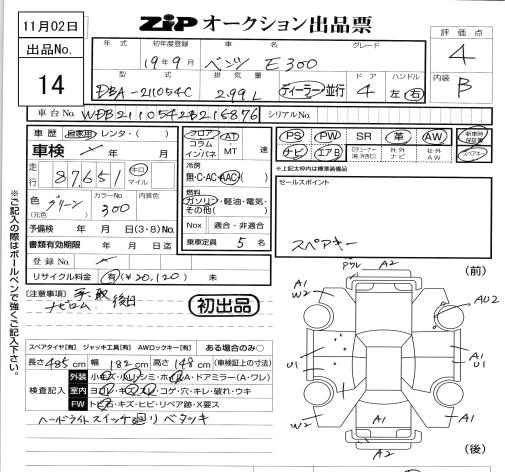 11月02日
ZiP オークション出品票
出品No.
14
評価点
4
内装
B
年式 初年度登録 車名 グレード
19年9月 ベンツ E300
型式 排気量 ドア ハンドル
DBA-211054C 2.99L ディーラー・並行 4 左・右
車台No. WDB2110542B216876 シリアルNo.
車歴 自家用・レンタ・( )
車検 年 月
走行 87,651 キロ マイル
色 グリーン カラーNo. 300 内装色
(元色)
予備検 年 月 日(3・8)No.
書類有効期限 年 月 日迄
登録No.
リサイクル料金 有(¥20,120) 未
フロア
コラム
インパネ
AT
・
MT 速
冷房
無・C・AC・AAC
燃料
ガソリン・軽油・電気・
その他( )
Nox 適合・非適合
乗車定員 5 名
PS PW SR 革 AW 新車時保証書
ナビ エアB Dチューナー 社外ナビ 社外AW スペアキー
※上記太枠内は標準装備品
セールスポイント
スペアキー
※ご記入の際はボールペンで強くご記入下さい。
[注意事項] 手、取 後日
ナビロム
初出品
スペアタイヤ[有] ジャッキ工具[有] AWロックキー[有] ある場合のみ○
長さ 485 cm 幅 182 cm 高さ 148 cm (車検証上の寸法)
検査記入
外装 小キズ・ハリシミ・ホイルA・ドアミラー(A・ワレ)
室内 ヨゴレ・キズ・スレ・コゲ・穴・キレ・破れ・ウキ
FW トビ石・キズ・ヒビ・リペア跡・X要ス
ヘッドライトスイッチ回リベタツキ
(前)
A2
ワレ
A1
W2
AU2
A1
U1
A1
U1
A1
W2
A1
A1
A2
(後)